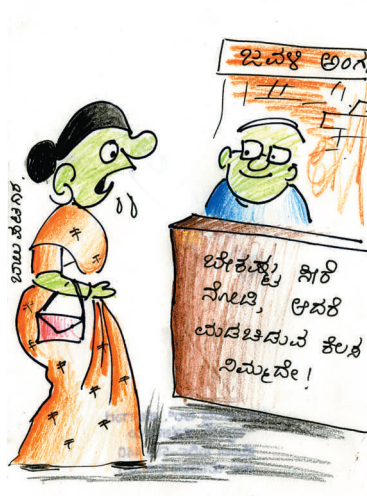 ಜವಳಿ ಅಂಗ
ಬೇಕಷ್ಟು ಸೀರೆ
ನೋಡಿ, ಆದರೆ
ಮಡಚಿಡುವ ಕೆಲಸ
ನಿಮ್ಮದೇ!